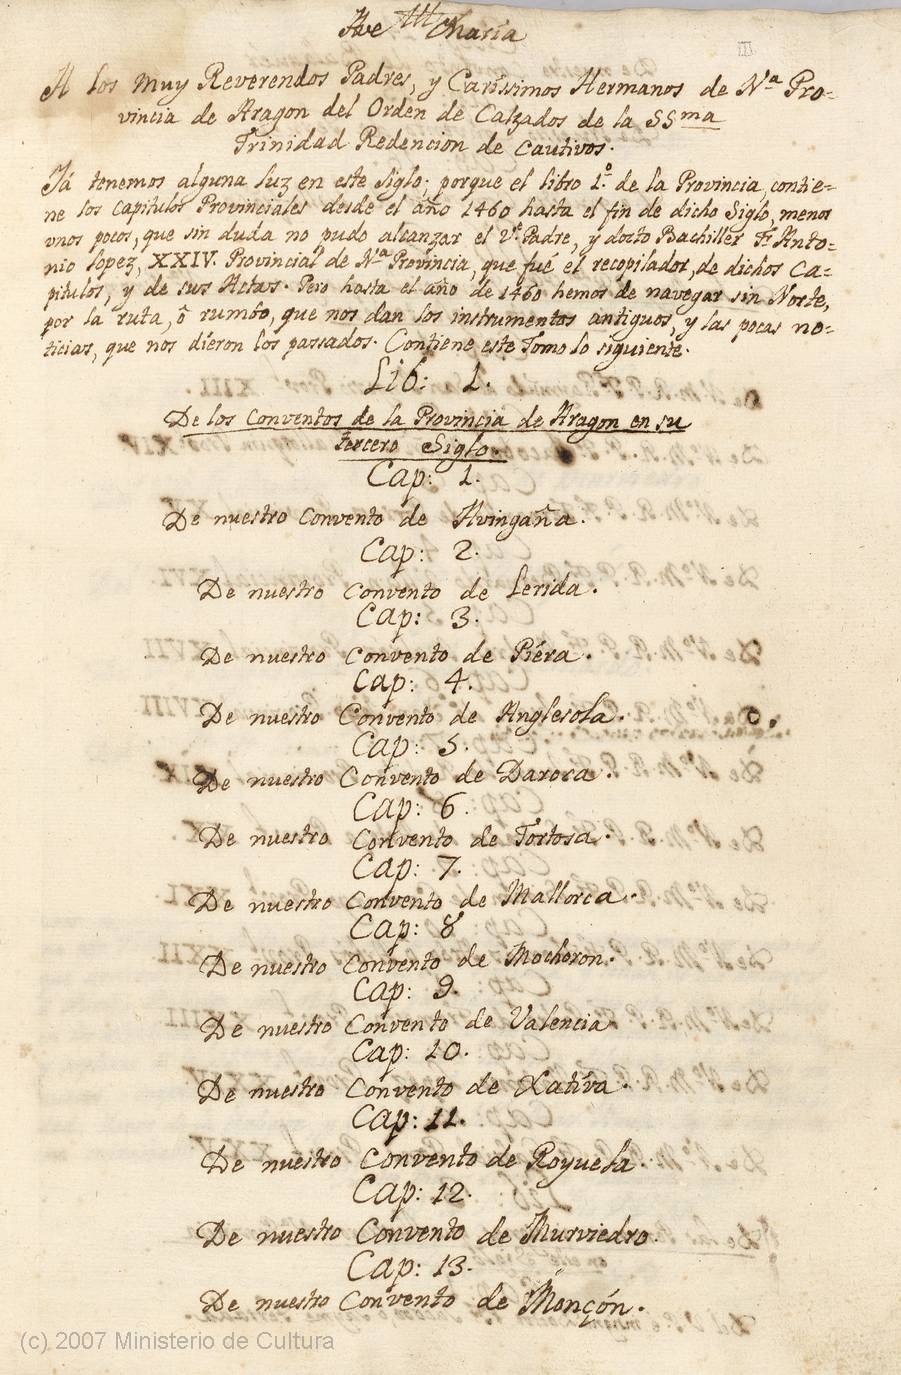 Ave Maria
III
A los Muy Reverendos Padres, y Caríssimos Hermanos de Nª Pro=
vincia de Aragon del Orden de Calzados de la SSma
Trinidad Redencion de Cautivos.
Iá tenemos alguna luz en este Siglo; porque el libro 1º. de la Provincia, contie=
ne los Capitulos Provinciales desde el año 1460 hasta el fin de dicho Siglo, menos
unos pocos, que sin duda no pudo alcanzar el Vº. Padre, y docto Bachiller Fr. Anto=
nio Lopez, XXIV. Provincial de Nª Provincia, que fué el recopilador, de dichos Ca=
pitulos, y de sus Actas. Pero hasta el año de 1460 hemos de navegar sin Norte,
por la ruta, ô rumbo, que nos dan los instrumentos antiguos, y las pocas no=
ticias, que nos dieron los passados. Contiene este Tomo lo siguiente.
Lib: 1.
De los Conventos de la Provincia de Aragon en su
tercero Siglo.
Cap: 1.
De nuestro Convento de Avingaña.
Cap: 2.
De nuestro Convento de Lerida.
Cap: 3.
De nuestro Convento de Piéra.
Cap: 4.
De nuestro Convento de Anglesola.
Cap: 5.
De nuestro Convento de Daroca.
Cap: 6.
De nuestro Convento de Tortosa.
Cap: 7.
De nuestro Convento de Mallorca.
Cap: 8
De nuestro Convento de Mochoron.
Cap: 9.
De nuestro Convento de Valencia.
Cap: 10.
De nuestro Convento de Xatíva.
Cap: 11.
De nuestro Convento de Royuela.
Cap: 12.
De nuestro Convento de Murviedro.
Cap: 13.
De nuestro Convento de Monçón.
(c) 2007 Ministerio de Cultura